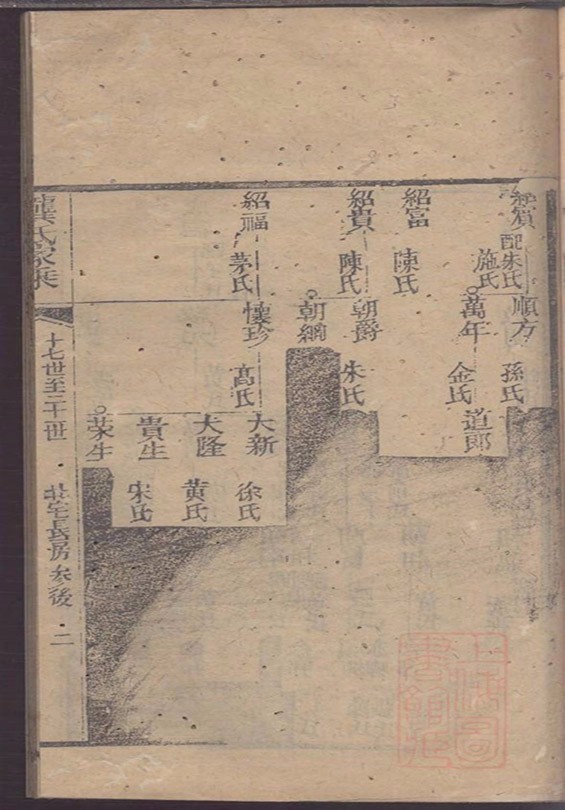 紹賓
配朱氏
施氏
順方
孫氏
萬年
金氏
道郎
紹富
陳氏
紹貴
陳氏
朝爵
朱氏
朝綱
紹福
茅氏
懷珍
高氏
大新
徐氏
大隆
黃氏
貴生
宋氏
榮生
龔氏家乘
十七世至二十世
北宅長房 参後 二
上海圖書館藏